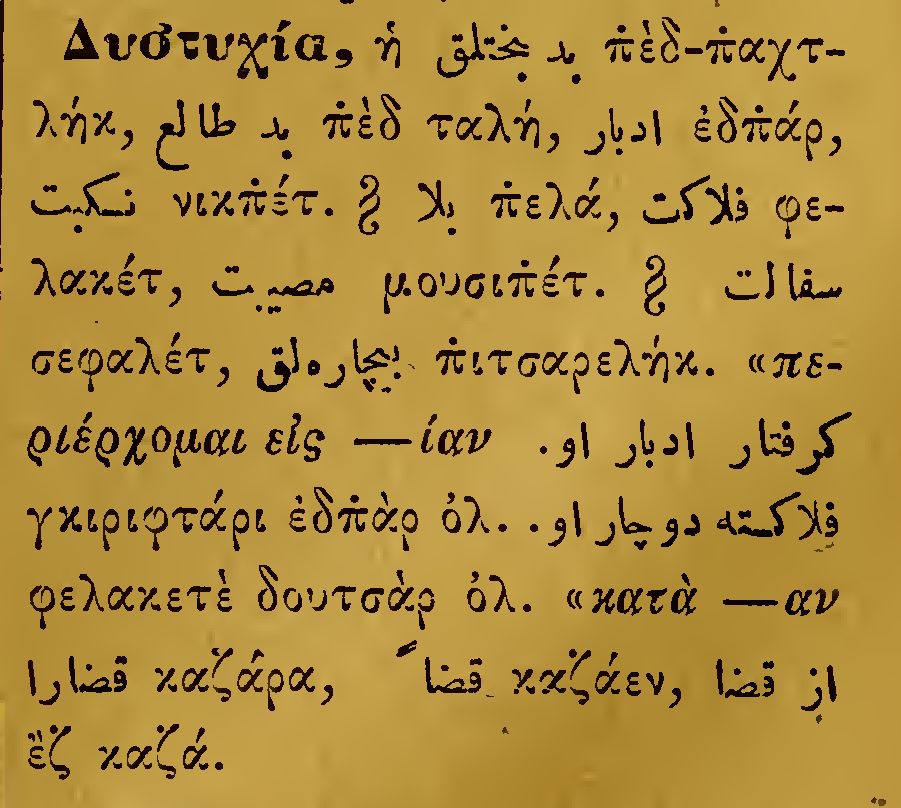 Δυστυχία, ἡ بد بختلق π̇ὲδ-π̇αχτ-
λήκ, بد طالع π̇ὲδ ταλή, ادبار ἐδπ̇άρ,
نكبت νικπ̇έτ. § بلا π̇ελά, فلاكت φε-
λακέτ, مصيبت μουσιπ̇έτ. § سفالت
σεφαλέτ, بيچاره‌لق π̇ιτσαρελήκ. «πε-
ριέρχομαι εἰς —ίαν كرفتار ادبار او.
γκιριφτάρι ἐδπ̇ὰρ ὀλ. فلاكته دوچار او.
φελακετὲ δουτσὰρ ὀλ. «κατὰ —αν
قضارا καζάρα, قضاً καζάεν, از قضا
ἒζ καζά.